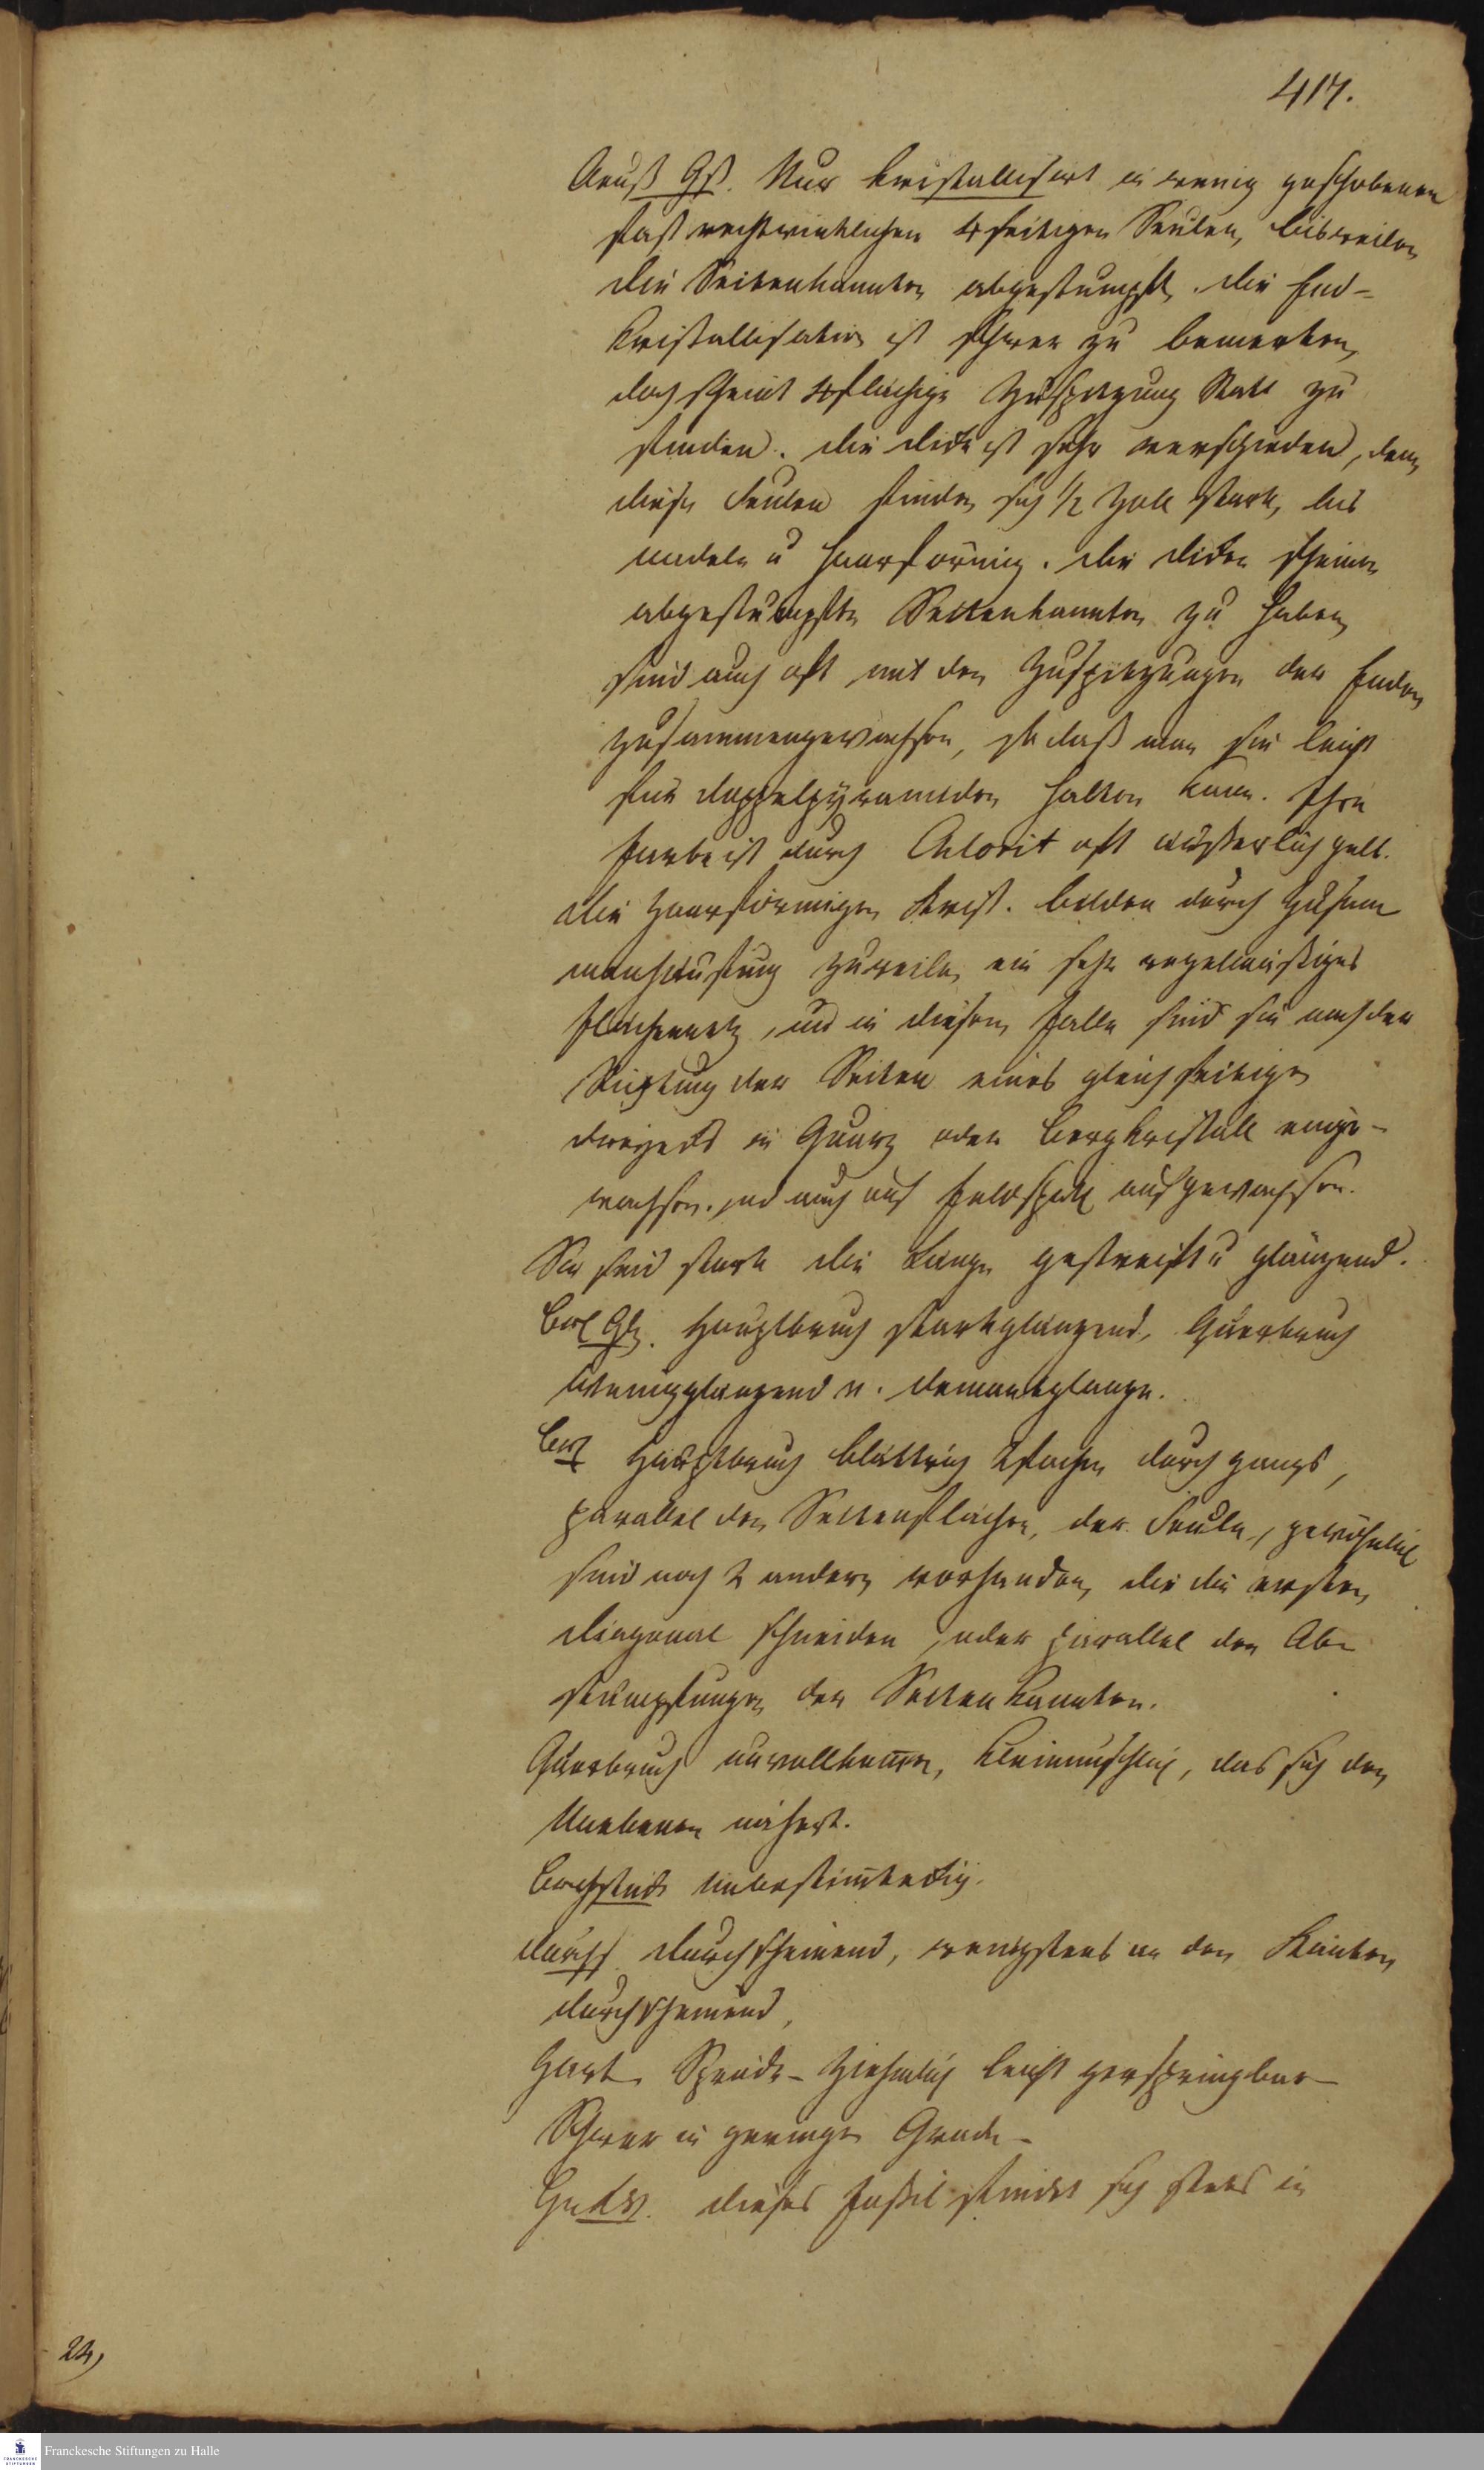 417.
Aeuß Gß. Nur kristallisirt in wenig geschobenen
fast rechtwinklichen 4seitigen Seulen, bisweilen
die Seitenkannten abgestumpft. die End-
kristallisation ist schwer zu bemerken,
doch scheint 4flächige Zuspitzung Statt zu
finden. die dicke ist sehr verschieden, denn
diese Seulen finden sich 1/2 Zoll stark, bis
nadeln u haarförmig. die dicken scheinen
abgestumpfte Seitenkannten zu haben,
sind auch oft mit den Zuspitzungen der Enden
zusammengewachsen, so daß man sie leicht
für doppelpyramiden halten kann. Ihre
farbe ist durch Chlorit oft äußerlich gelb.
die haarförmigen Krist. bilden durch Zusam
menhäufung zuweilen ein sehr regelmäßiges
flächennetz, und in diesem falle sind sie nach der
Richtung der Seiten eines gleichseitigen
dreyecks in Quarz oder Bergkristall einge-
wachsen. und auch auf feldspath aufgewachsen.
Sie sind stark die Länge gestreift u glänzend.
Br Glz. Hauptbruch starkglänzend, Querbruch
wenigglänzend v. demantglanze.
Br Hauptbruch blättrig 2fachen durchgangs,
parallel den Seitenflächen, der Seule, gewöhnlich
sind noch 2 andern vorhanden, die die ersten
diagonal schneiden, oder parallel den Ab-
stumpfungen der Seitenkannten.
Querbruch unvollkommen, kleinmuschlich, das sich dem
Unebenen nähert.
Bruchstück unbestimmteckig.
durchs durchscheinend, wenigstens an den Kanten
durchscheinend,
Hart. Spröde - Ziehmlich leicht zerspringbar -
Schwer in geringen Grade -
dieses foßil findet sich stets in
24,
Franckesche Stiftungen zu Halle
FRANCKESCHE STIFTUNGEN